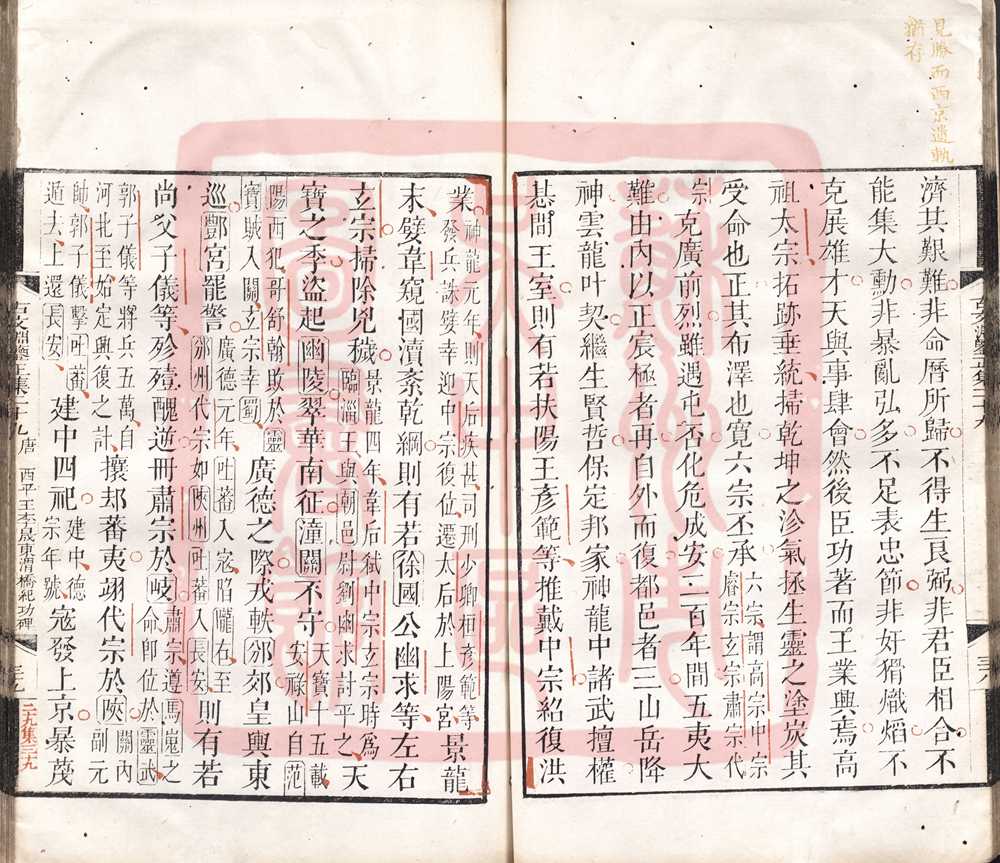 見勝西西京遺軌
猶存
濟其艱難非命曆所歸不得生良弼非君臣相合不
能集大勳非暴亂弘多不足表忠節非奸猾熾熖不
克展雄才天與事肆會然後臣功著而王業興焉高
祖太宗拓跡垂統掃乾坤之沴氣拯生靈之塗炭其
受命也正其布澤也寬六宗丕承六宗謂高宗中宗
睿宗玄宗肅宗代
宗克廣前烈雖遇屯否化危成安二百年間五夷大
難由內以正宸極者再自外而復都邑者三山岳降
神雲龍叶契繼生賢哲保定邦家神龍中諸武擅權
惎間王室則有若扶陽王彥範等推戴中宗紹復洪
業神龍元年則天后疾甚司刑少卿桓彥範等
發兵誅嬖幸迎中宗復位遷太后於上陽宮景龍
末嬖韋窺國瀆紊乾綱則有若徐國公幽求等左右
玄宗掃除兇穢景龍四年韋后弒中宗玄宗時爲
臨淄王與朝邑尉劉幽求討平之天
寶之季盜起幽陵翠華南征潼關不守天寶十五載
安祿山自范
陽西犯哥舒翰敗於靈
寶賊入關玄宗幸蜀廣德之際戎軼郊郊皇輿東
巡酆宮龍警廣德元年吐蕃入寇陷隴右至
邠州代宗如陝州吐蕃入長安則有若
尚父子儀等殄殪醜逆冊肅宗於岐肅宗遵馬嵬之
命卽位於靈武
郭子儀等將兵五萬自
河北至始定興復之計攘却蕃夷翊代宗於陝關內
副元
帥郭子儀擊吐蕃
遁去上還長安建中四祀建中德
宗年號寇發上京暴蔑
古文淵鑒正集二十九 唐 西平王李晟東渭橋紀功碑 三九
二九集三九